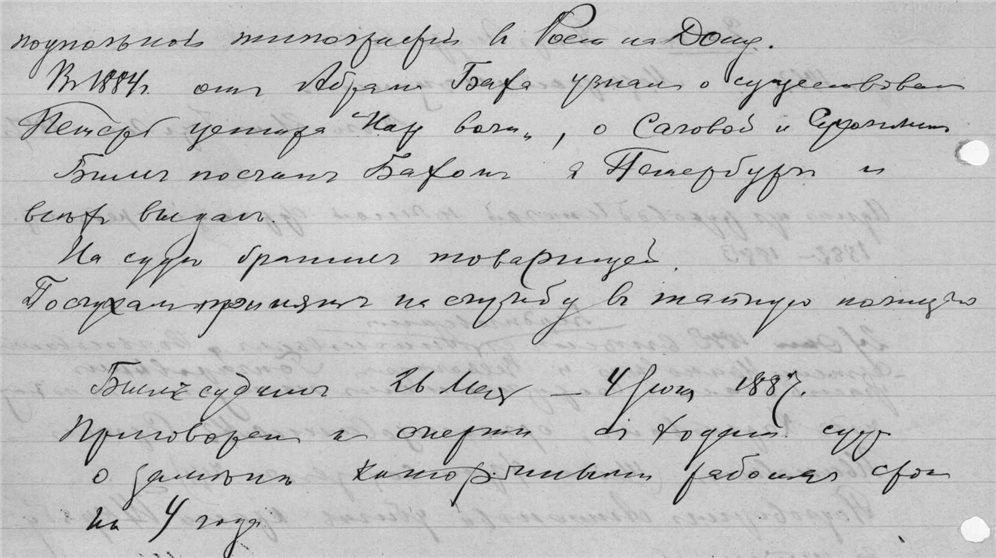 подпольной типографией в Рост на Дону.
В 1884 г от Абрама Баха узнал о существован
Петерб центра "Нар воли", о Саловой и Сухомлин
Был послан Бахом в Петербург и
всех выдал.
На суде бранил товарищей.
По слухам принят на службу в тайную полицию
Был судим 26 Мая – 4 Июня 1887.
Приговорен к смерти с ходат суда
о замене каторжными работами срок
на 4 года